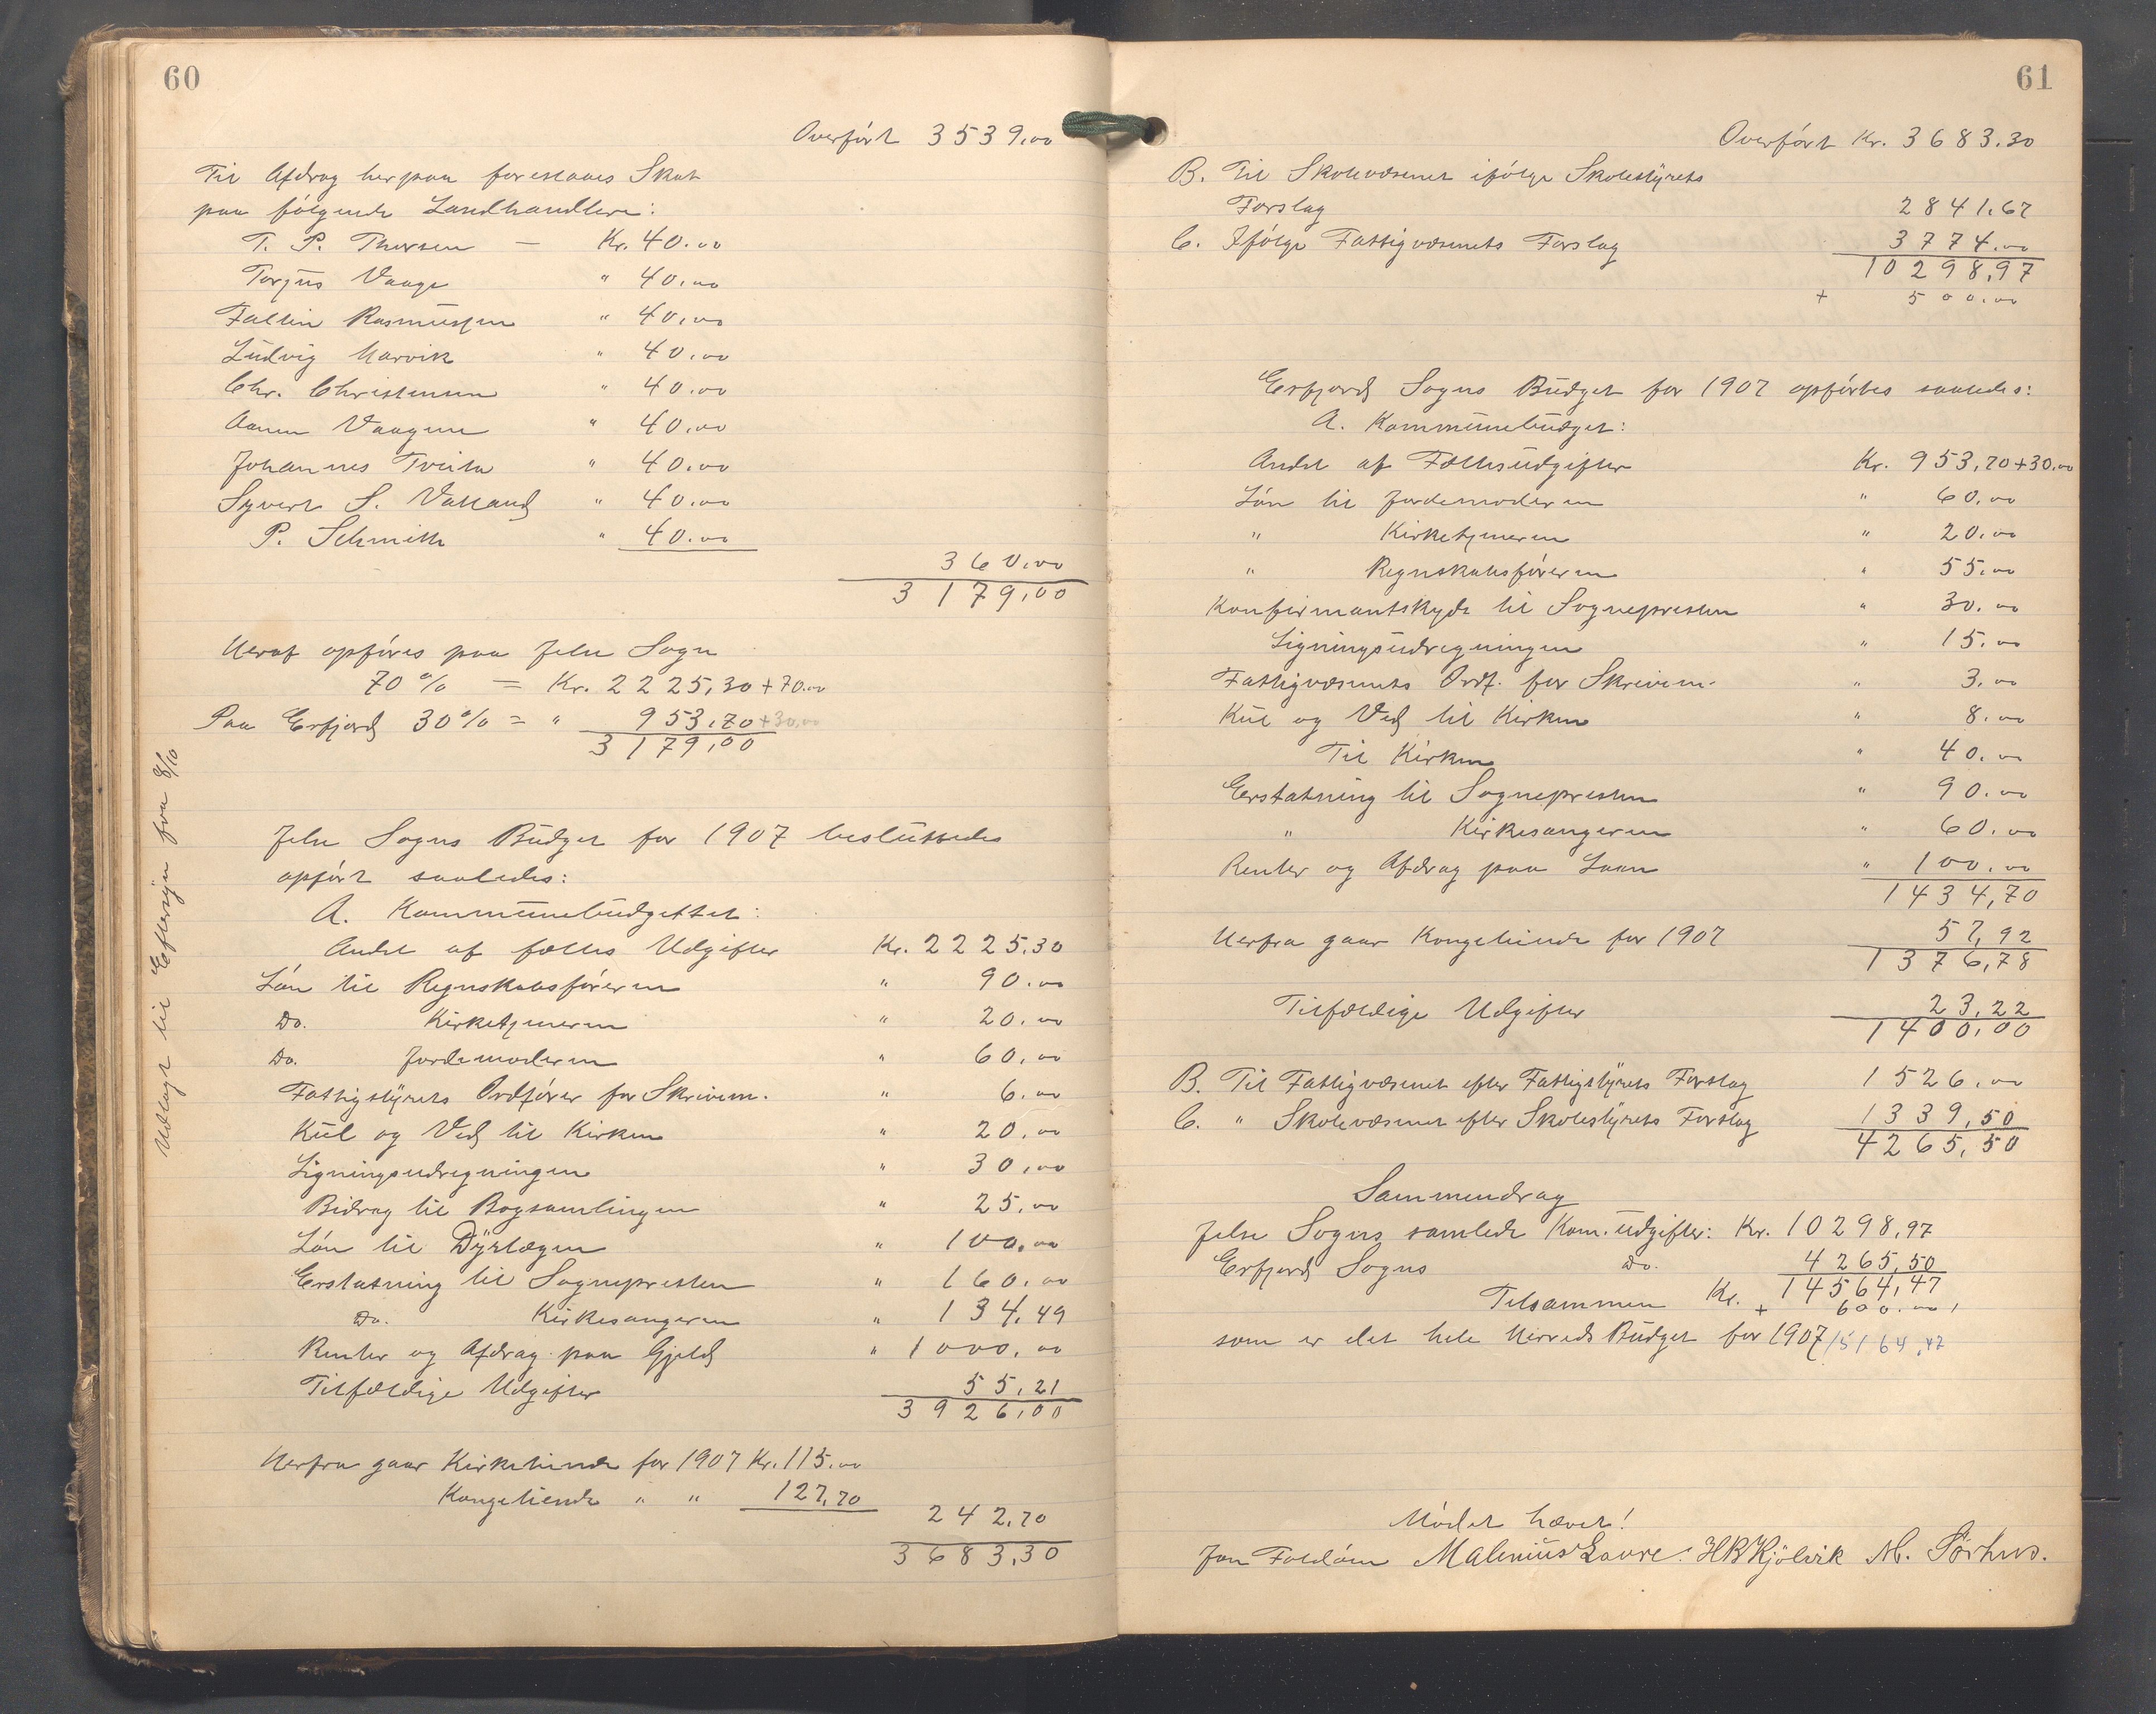 60
Overført 3539.00
Til Afdrag herpaa foreslaaes Skat
paa følgende Landhandlere:
T. P. Thorsen — Kr. 40.00
Torjus Vaage " 40.00
Faltin Rasmussen " 40.00
Ludvig Marvik " 40.00
Chr. Christensen " 40.00
Aanen Vaagene " 40.00
Johannes Tveita " 40.00
Syvert S. Vatland " 40.00
P. Schmith " 40.00
360.00
3179,00
Heraf opføres paa Jelse Sogn
70 % = Kr. 2225,30 + 70.00
Paa Erfjord 30 % = " 953,70 + 30.00
3179,00
Udlagt til Eftersyn fra 8/10
Jelse Sogns Budget for 1907 besluttedes
opført saaledes:
A. Kommunebudgettet:
Andel af fælles Udgifter Kr. 2225.30
Løn til Regnskabsføreren " 90.00
Do. Kirketjeneren " 20.00
Do. Jordemoderen " 60.00
Fattigstyrets Ordfører for Skrivem. " 6.00
Kul og Ved til Kirken " 20.00
Ligningsudregningen " 30.00
Bidrag til Bogsamlingen " 25.00
Løn til Dyrlægen " 100.00
Erstatning til Sognepresten " 160.00
Do. Kirkesangeren " 134.49
Renter og Afdrag paa Gjeld " 1000.00
Tilfældige Udgifter 55,21
3926,00
Herfra gaar Kirketiende for 1907 Kr. 115.00
Kongetiende " " 127,70
242,70
3683,30
61
Overført Kr. 3683.30
B. Til Skolevæsenet ifølge Skolestyrets
Forslag 2841.67
C. Ifølge Fattigvæsenets Forslag 3774.00
10298,97
+ 500.00
Erfjord Sogns Budget for 1907 opførtes saaledes:
A. Kommunebudget:
Andel af Fællesudgifter Kr. 953,70+30.00
Løn til Jordemoderen " 60.00
" Kirketjeneren " 20.00
" Regnskabsføreren " 55.00
Konfirmantskyds til Sognepresten " 30.00
Ligningsudregningen " 15.00
Fattigvæsenets Ordf. for Skrivem. " 3.00
Kul og Ved til Kirken " 8.00
Til Kirken " 40.00
Erstatning til Sognepresten " 90.00
" Kirkesangeren " 60.00
Renter og Afdrag paa Laan " 100.00
1434,70
Herfra gaar Kongetiende for 1907 57,92
1376,78
Tilfældige Udgifter 23,22
1400,00
B. Til Fattigvæsenet efter Fattigstyrets Forslag 1526.00
C. " Skolevæsenet efter Skolestyrets Forslag 1339,50
4265,50
Sammendrag
Jelse Sogns samlede Kom. udgifter: Kr. 10298,97
Erfjord Sogns Do. 4265,50
Tilsammen Kr. 14564,47
+ 600.00
som er det hele Herreds Budget for 1907 15164,47
Mødet hævet!
Jon Foldøen Malenius Laure. HB Kjølvik M. Sørhus.